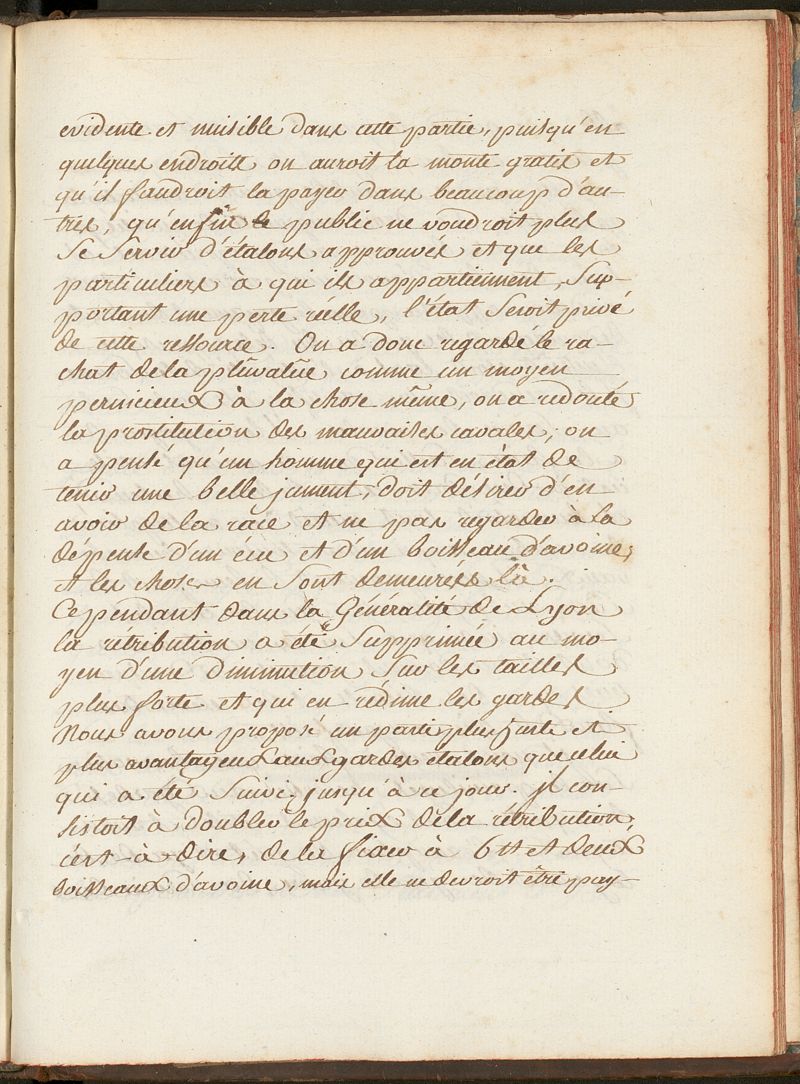 evidente et nuisible dans cette partie, puisqu'en
quelques endroits on auroit la monte gratis et
qu'il faudroit la payer dans beaucoup d'au-
tres, qu'enfin le public ne voudroit plus
se servir d'étalons approuvés et que les
particuliers à qui ils appartiennent, sup-
portant une perte réelle, l'état seroit privé
de cette ressource. On a donc regardé le ra-
chat de la plûvalüe comme un moyen
pernicieux à la chose même, on a redouté
la prostitution des mauvaises cavales; on
a pensé qu'un homme qui est en état de
tenir une belle jument, doit désirer d'en
avoir de la race et ne pas regarder à la
dépense d'un écu et d'un boisseau d'avoine;
et les choses en sont demeurées là.
Cependant dans la Généralité de Lyon
la rétribution a été supprimée au mo-
yen d'une diminution sur les tailles
plus forte et qui en rédime les gardes
Nous avons proposé un parti plus juste et
plus avantageux aux gardes étalons que celui
qui a été suivi jusqu'à ce jour. jl con-
sistoit à doubler le prix de la rétribution,
c'est-à-dire, de la fixer à 6 tt et deux
boisseaux d'avoine, mais elle ne devroit être pay-